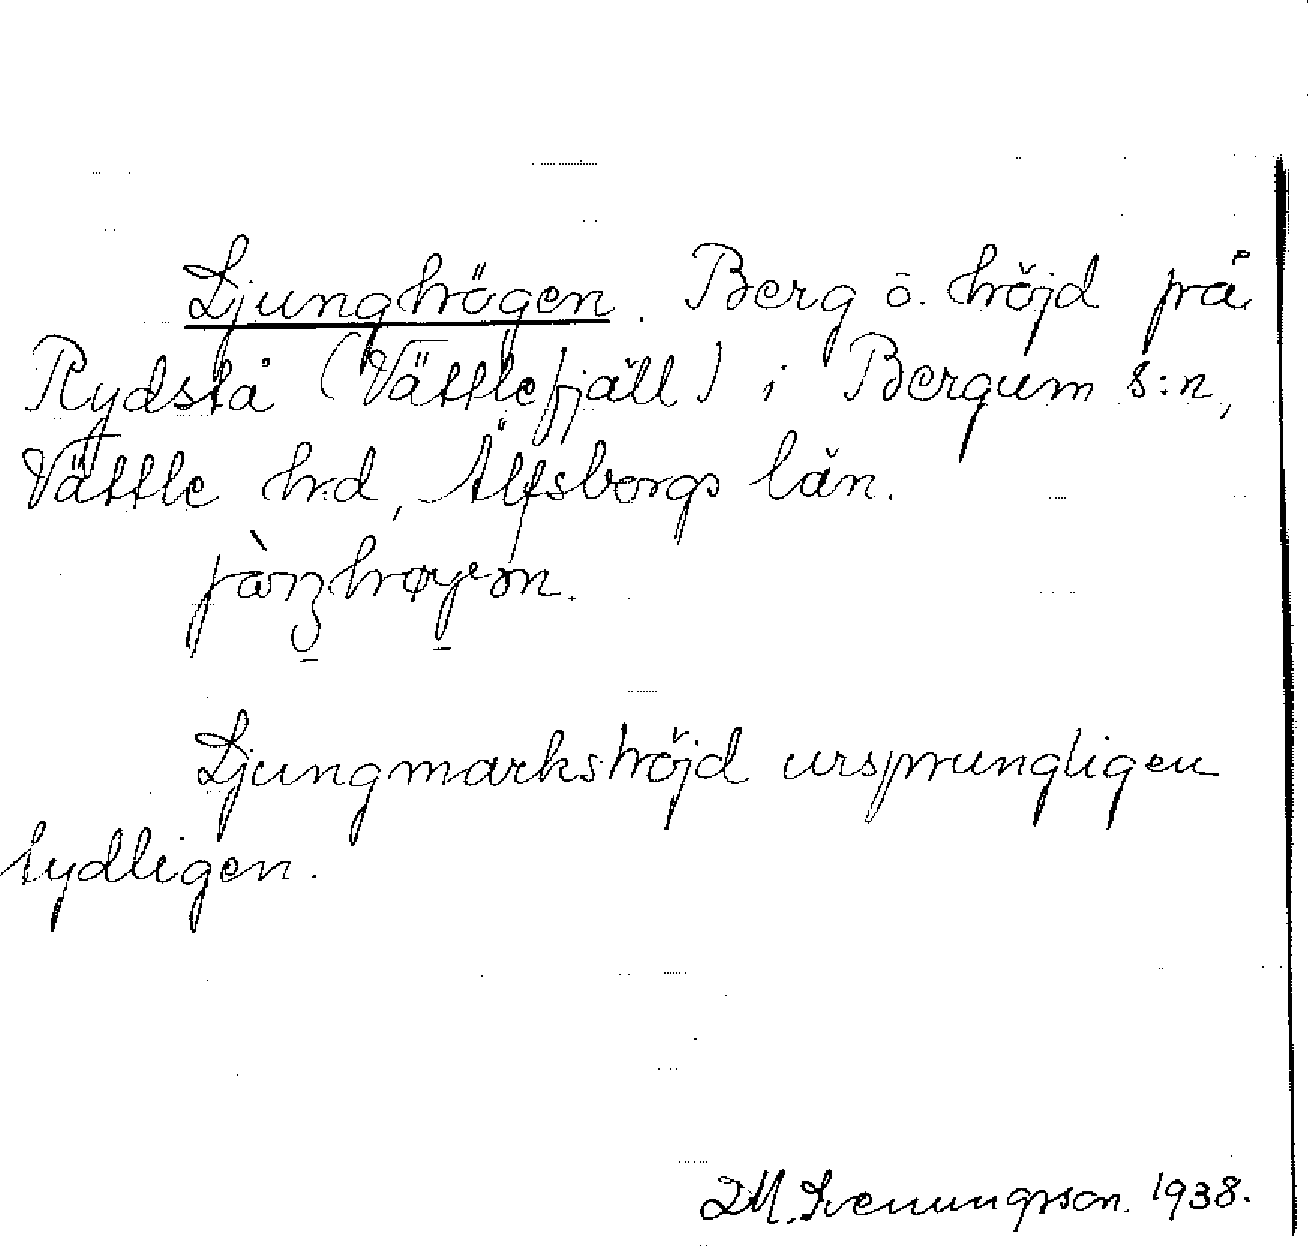 Ljunghögen. Berg o. höjd på
Rydslå (Vättlefjäll) i Bergum s:n,
Vättle hrd, Älfsborgs län.
Ljungmarkshöjd ursprungligen
tydligen.
Svenungsson. 1938.